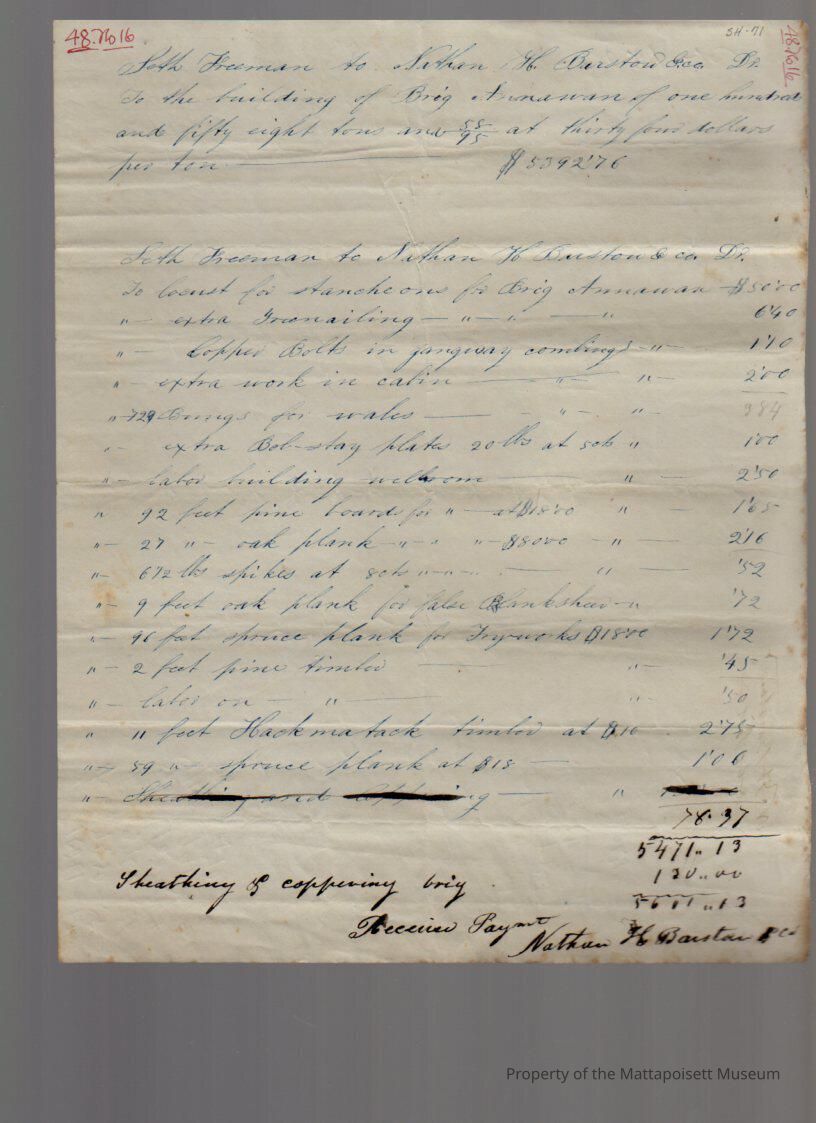 48.76.16
SH-71
48.76.16
Seth Freeman to Nathan H. Barstow & co. Dr.
To the building of Brig Annawan of one hundred
and fifty eight tons and 58/95 at thirty four dollars
per ton $5392'76
Seth Freeman to Nathan H Barstow & co Dr.
To locust for stancheons for Brig Annawan $50'00
" extra Treenailing " " " 6'40
" Copper Bolts in gangway combings " 1'10
" extra work in cabin " " 2'00
" 729 Bungs for wales " " 3 84
" extra Bob-stay plates 20 lbs at 5cts " 1'00
" labor building wellroom " 2'50
" 92 feet pine boards for " at $18'00 " 1'65
" 27 " oak plank " " " $80'00 " 2'16
" 6 1/2 lbs spikes at 8cts " " " " '52
" 9 feet oak plank for false Plankshear " '72
" 96 feet spruce plank for Tryworks $18'00 1'72
" 2 feet pine timber " '45
" labor on " " '50
" 11 feet Hackmatack timber at $10 2'75
" 59 " spruce plank at $18 1'06
" Sheathing and coppering "
78.37
5471.13
Sheathing & coppering brig 130.00
5601.13
Received Paymt
Nathan H Barstow & Co
Property of the Mattapoisett Museum